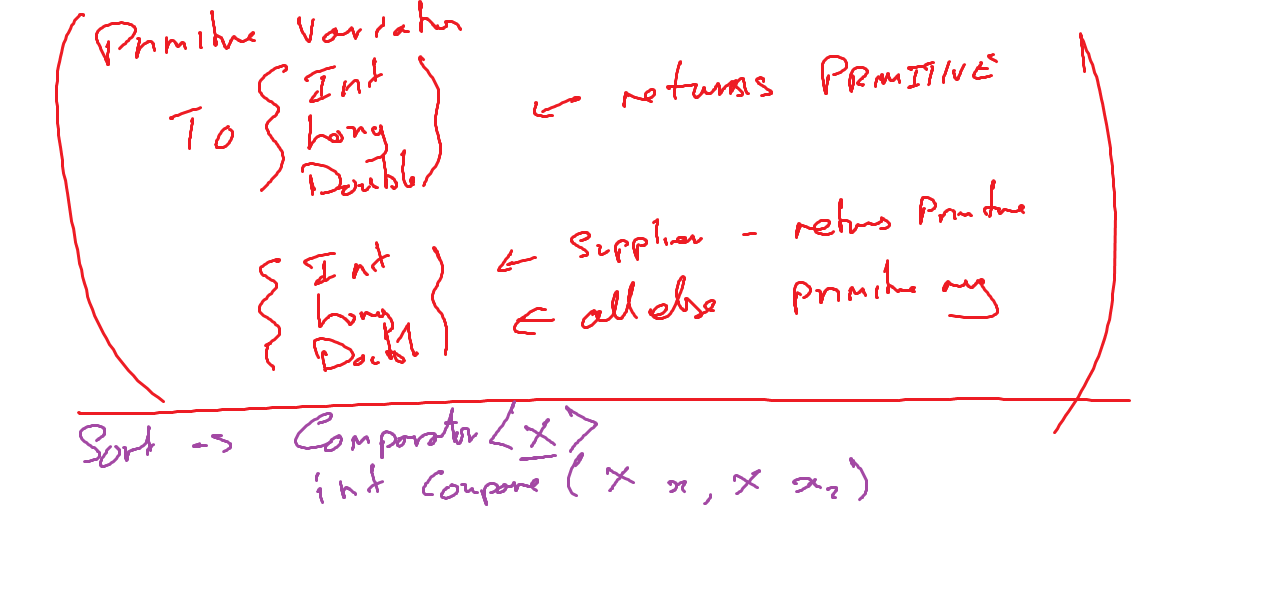 Primitive Variation
To { Int Long Double } ← returns PRIMITIVE
{ Int Long Doubl } ← Supplier - returns Primitive
← all else primitive arg
Sort -> Comparator<X>
int compare ( X x, X x2 )